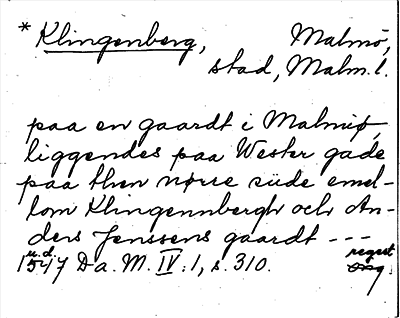 * Klingenberg, Malmö,
stad, Malm. l.
paa en gaardt i Malmiø,
liggendes paa Wester gade
paa then nørre siide emel-
lom Klingennbergh och An-
ders Jenssens gaardt ---
u.d. regest
1547 Da. M. IV:1, s. 310. orig.